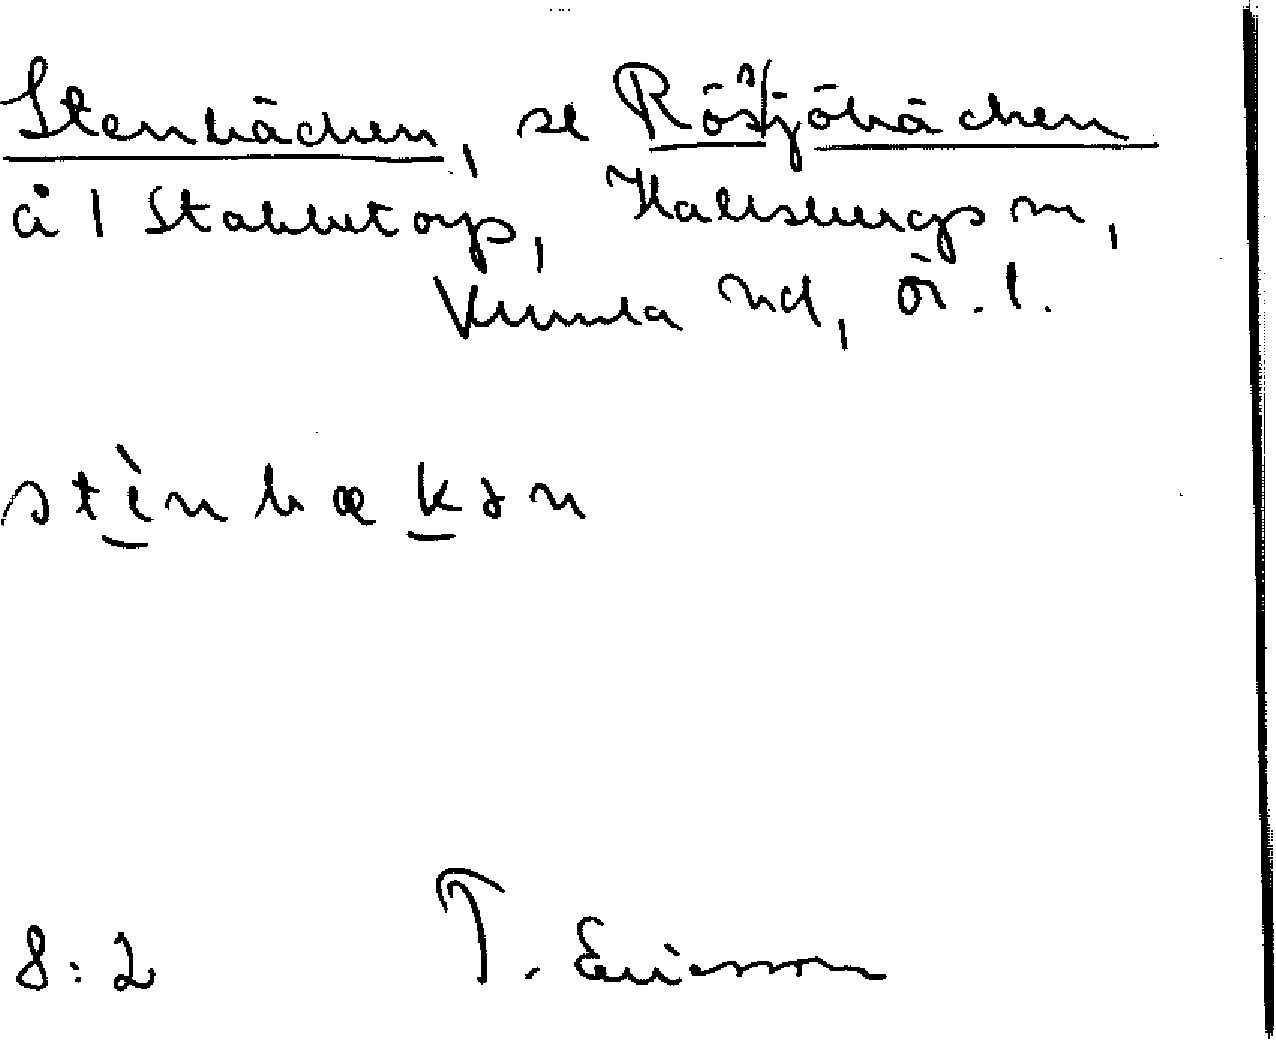 Stenbäcken, se Rösjöbäcken
å i Stabbetorp, Hallsbergs sn,
Kumla hd, Ör. l.
stìnbækən
8:2 T. Ericsson